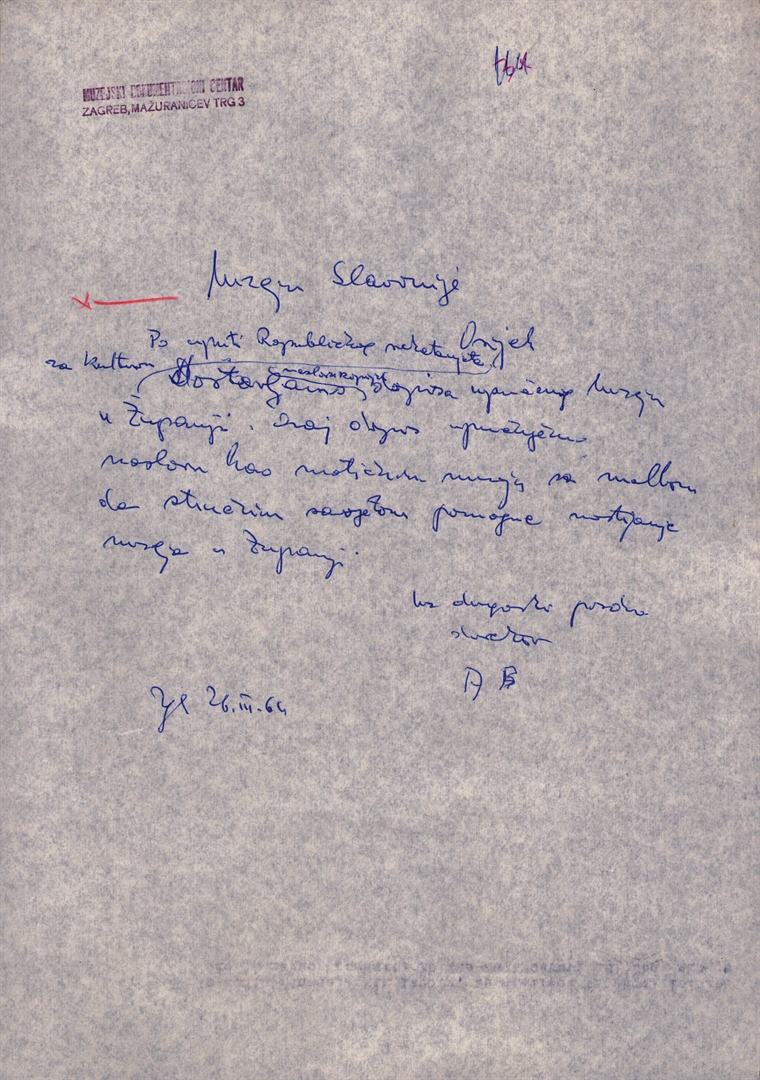 164
MUZEJSKI DOKUMENTACIONI CENTAR
ZAGREB, MAŽURANIĆEV TRG 3
Muzeju Slavonije
Osijek
Po uputi Republičkog sekretarijata
za kulturu
naslovu kopiju
Dostavljamo dopisa upućenog Muzeju
u Županji. Ovaj dopis upućujemo
naslovu kao matičnom muzeju sa molbom
da stručnim savjetom pomogne nastojanje
muzeja u Županji.
Uz drugarski pozdrav
direktor
A B
Zg 26.III.64